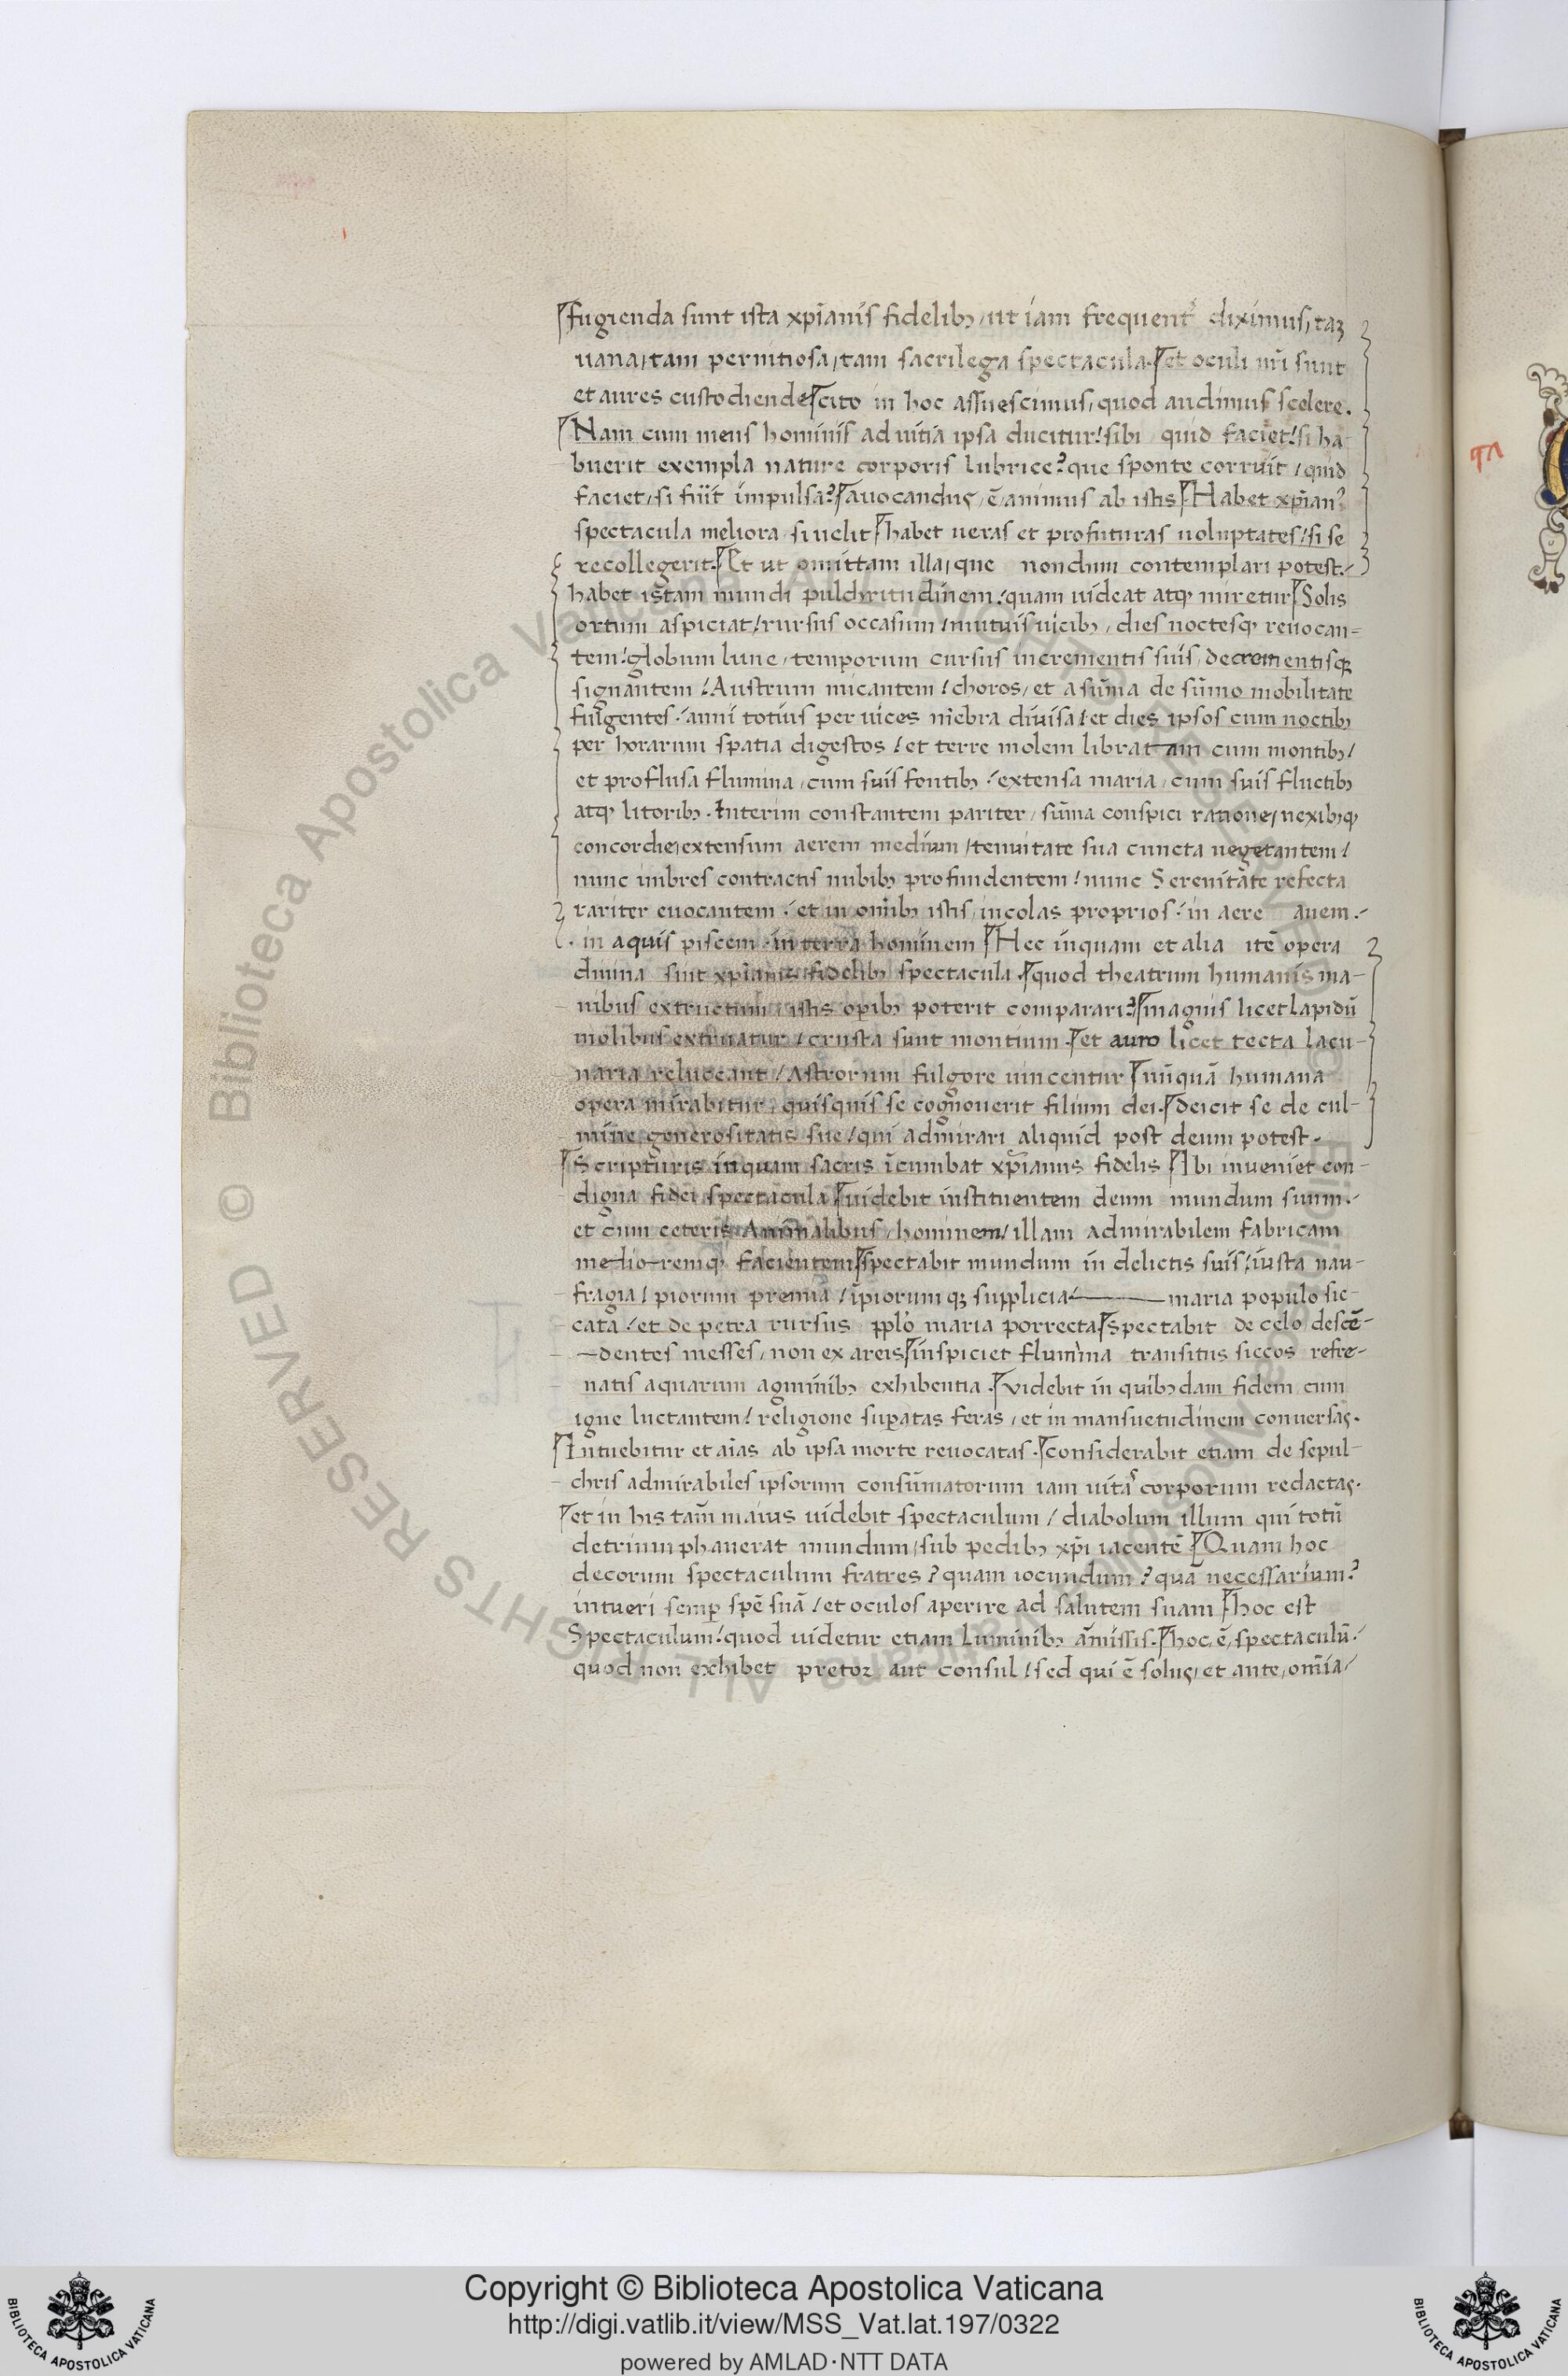 fugienda sunt ista xp̄ianis fidelibꝫ, ut iam frequent᷑ diximus, taꝫ
uana, tam pernitiosa, tam sacrilega spectacula. et oculi nr̄i sunt
et aures custodiende cito in hoc assuescimus, quod audimus scelere.
Nam cum mens hominis ad uitia ipsa ducitur! sibi quid faciet! si ha
buerit exempla nature corporis lubrice? que sponte corruit / quid
faciet, si fuīt impulsa? auocandus ē animus ab istis. Habet xp̄ianꝰ
spectacula meliora si uelit habet ueras et profuturas uoluptates! si se
recollegerit. Et ut omittam illa, que nondum contemplari potest.
habet istam mundi pulchritudinem! quam uideat atqꝫ miretur Solis
ortum aspiciat! rursus occasum! mutuis uicibꝫ, dies noctesqꝫ reuocan=
tem! globum lune, temporum cursus incrementis suis, decrementisqꝫ
signantem! Austrum micantem! choros, et a sūma de sūmo mobilitate
fulgentes. anni totius per uices mēbra diuisa! et dies ipsos cum noctibꝫ
per horarum spatia digestos! et terre molem libratam cum montibꝫ!
et proflusa flumina, cum suis fontibꝫ! extensa maria, cum suis fluctibꝫ
atqꝫ litoribꝫ. Interim constantem pariter, sūma conspici ratione, nexibꝫqꝫ
concordie, extensum aerem medium, tenuitate sua cuncta uegetantem!
nunc imbres contractis nubibꝫ profundentem! nunc Serenitate refecta
rariter euocantem! et in omībꝫ istis, incolas proprios! in aere auem.
in aquis piscem. in terra hominem Hec inquam et alia itē opera
diuina sint xp̄ianis fidelibꝫ spectacula. quod theatrum humanis ma-
nibus extructum, istis oꝑibꝫ poterit comparari? magnis licet lapidū
molibus extruatur, crusta sunt montium. et auro licet tecta lacu-
naria reluceant! Astrorum fulgore uincentur nūquā humana
opera mirabitur, quisquis se cognouerit filium dei. deicit se de cul-
mine generositatis sue, qui admirari aliquid post deum potest.
Scripturis inquam sacris īcumbat xp̄ianus fidelis Ibi inueniet con-
digna fidei spectacula uidebit instituentem deum mundum suum.
et cum ceteris Animalibus, hominem, illam admirabilem fabricam
melioremqꝫ facientem spectabit mundum in delictis suis! iusta nau-
fragia! piorum premia! īpiorumqꝫ supplicia! maria populo sic-
cata! et de petra rursus ppl̄o maria porrecta spectabit de celo descē-
-dentes messes, non ex areis inspiciet flumina transitus siccos refre-
natis aquarum agminibꝫ exhibentia. videbit in quibꝫdam fidem cum
igne luctantem! religione suꝑatas feras, et in mansuetudinem conuersas.
Intuebitur et aīas ab ipsa morte reuocatas. considerabit etiam de sepul-
chris admirabiles ipsorum consūmatorum iam uitas corporum redactas.
et in his tam̄ maius uidebit spectaculum / diabolum illum qui totū
detriumphauerat mundum, sub pedibꝫ xp̄i iacentē Quam hoc
decorum spectaculum fratres? quam iocundum? quā necessarium?
intueri semꝑ spē suā! et oculos aperire ad salutem suam hoc est
Spectaculum! quod uidetur etiam Luminibꝫ āmissis. hoc ē, spectaculū.
quod non exhibet pretor aut consul! sed qui ē solus, et ante, omīa/
Copyright © Biblioteca Apostolica Vaticana
http://digi.vatlib.it/view/MSS_Vat.lat.197/0322
powered by AMLAD·NTT DATA
© Biblioteca Apostolica Vaticana ALL RIGHTS RESERVED
BIBLIOTECA APOSTOLICA VATICANA
BIBLIOTECA APOSTOLICA VATICANA